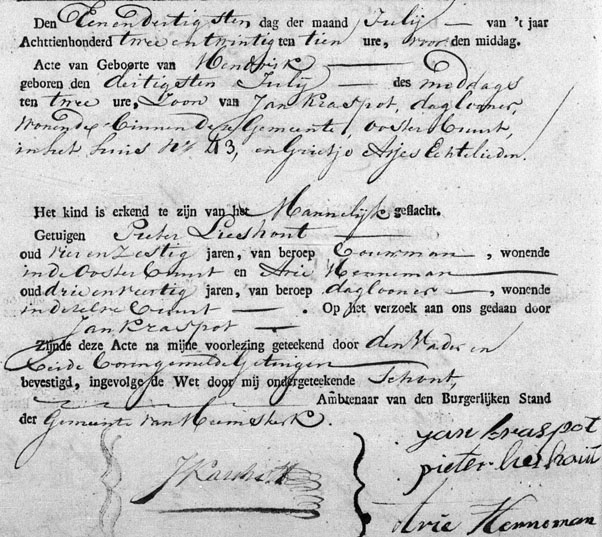 Den Eenendertigsten dag der maand Julij — van 't jaar
Achttienhonderd twee en twintig ten tien ure, voor den middag.
Acte van Geboorte van Hendrik —
geboren den dertigsten Julij — des middags
ten twee ure, Zoon van Jan Kraspot, daglooner,
wonende binnen deze Gemeente, Ooster Buurt,
in het huis N° 43, en Grietje Arjes Echtelieden.
Het kind is erkend te zijn van het Mannelijk geslacht.
Getuigen Pieter Lieshout —
oud vier en zestig jaren, van beroep Bouwman —, wonende
in de Ooster Buurt en Arie Henneman —
oud drie en veertig jaren, van beroep daglooner —, wonende
in dezelve Buurt — . Op het verzoek aan ons gedaan door
Jan Kraspot —
Zijnde deze Acte na mijne voorlezing geteekend door den Vader en
beide bovengemelde Getuigen
bevestigd, ingevolge de Wet door mij ondergeteekende Schout,
Ambtenaar van den Burgerlijken Stand
der Gemeente van Heemskerk.
jan kraspot
pieter lieshout
Arie Henneman